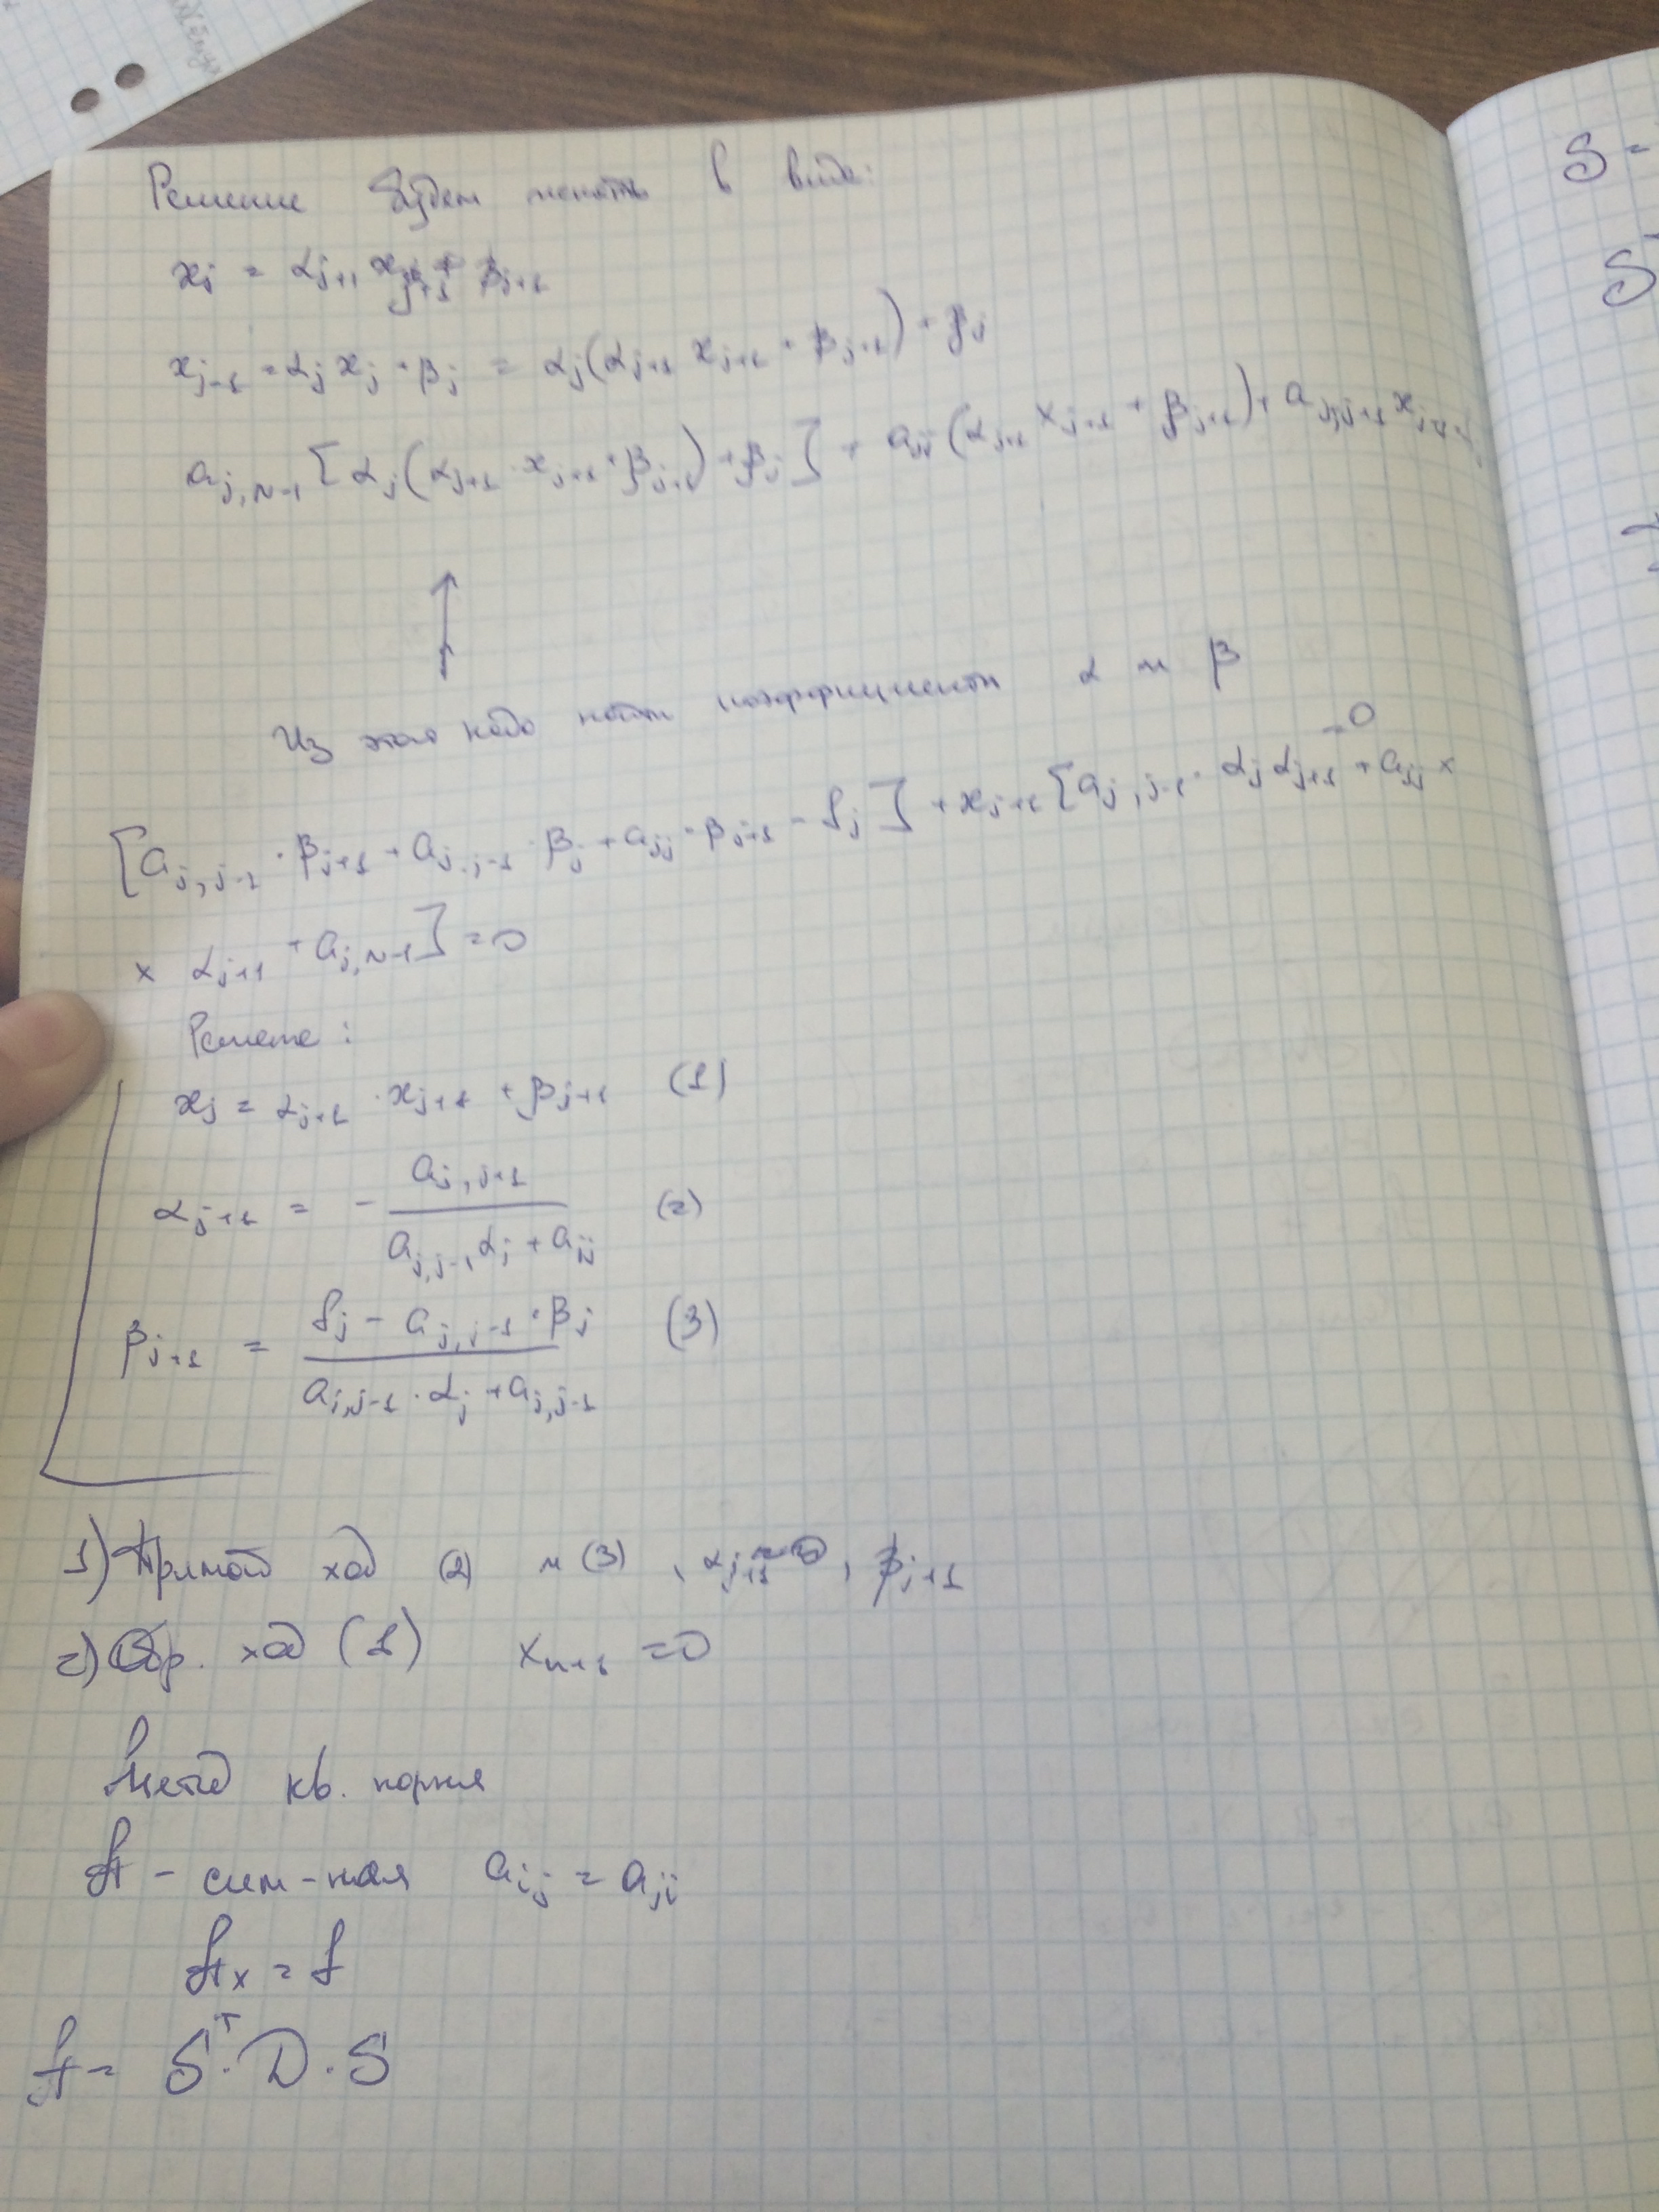 Решение будем искать в виде:
xj = αj+1 xj+1 + βj+1
xj-1 = αj xj + βj = αj(αj+1 xj+1 + βj+1) + βj
aj,N-1 [αj(αj+1 · xj+1 + βj+1) + βj] + ajj(αj+1 xj+1 + βj+1) + aj,j+1 xj+1
Из этого надо найти коэффициенты α и β
=0
[aj,j-1 · βj+1 + aj,j-1 · βj + ajj · βj+1 - fj] + xj+1 [aj,j-1 · αj αj+1 + ajj ×
× αj+1 + aj,N-1] = 0
Решение:
xj = αj+1 · xj+1 + βj+1 (1)
αj+1 = - aj,j+1 / (aj,j-1 αj + ajj) (2)
βj+1 = (fj - aj,j-1 · βj) / (aj,j-1 · αj + aj,j-1) (3)
1) Прямой ход (2) и (3), αj+1, βj+1
2) Обр. ход (1) xn+1 = 0
Метод кв. корня
A - сим-ная aij = aji
Ax = f
A = Sᵀ · D · S
S =
S